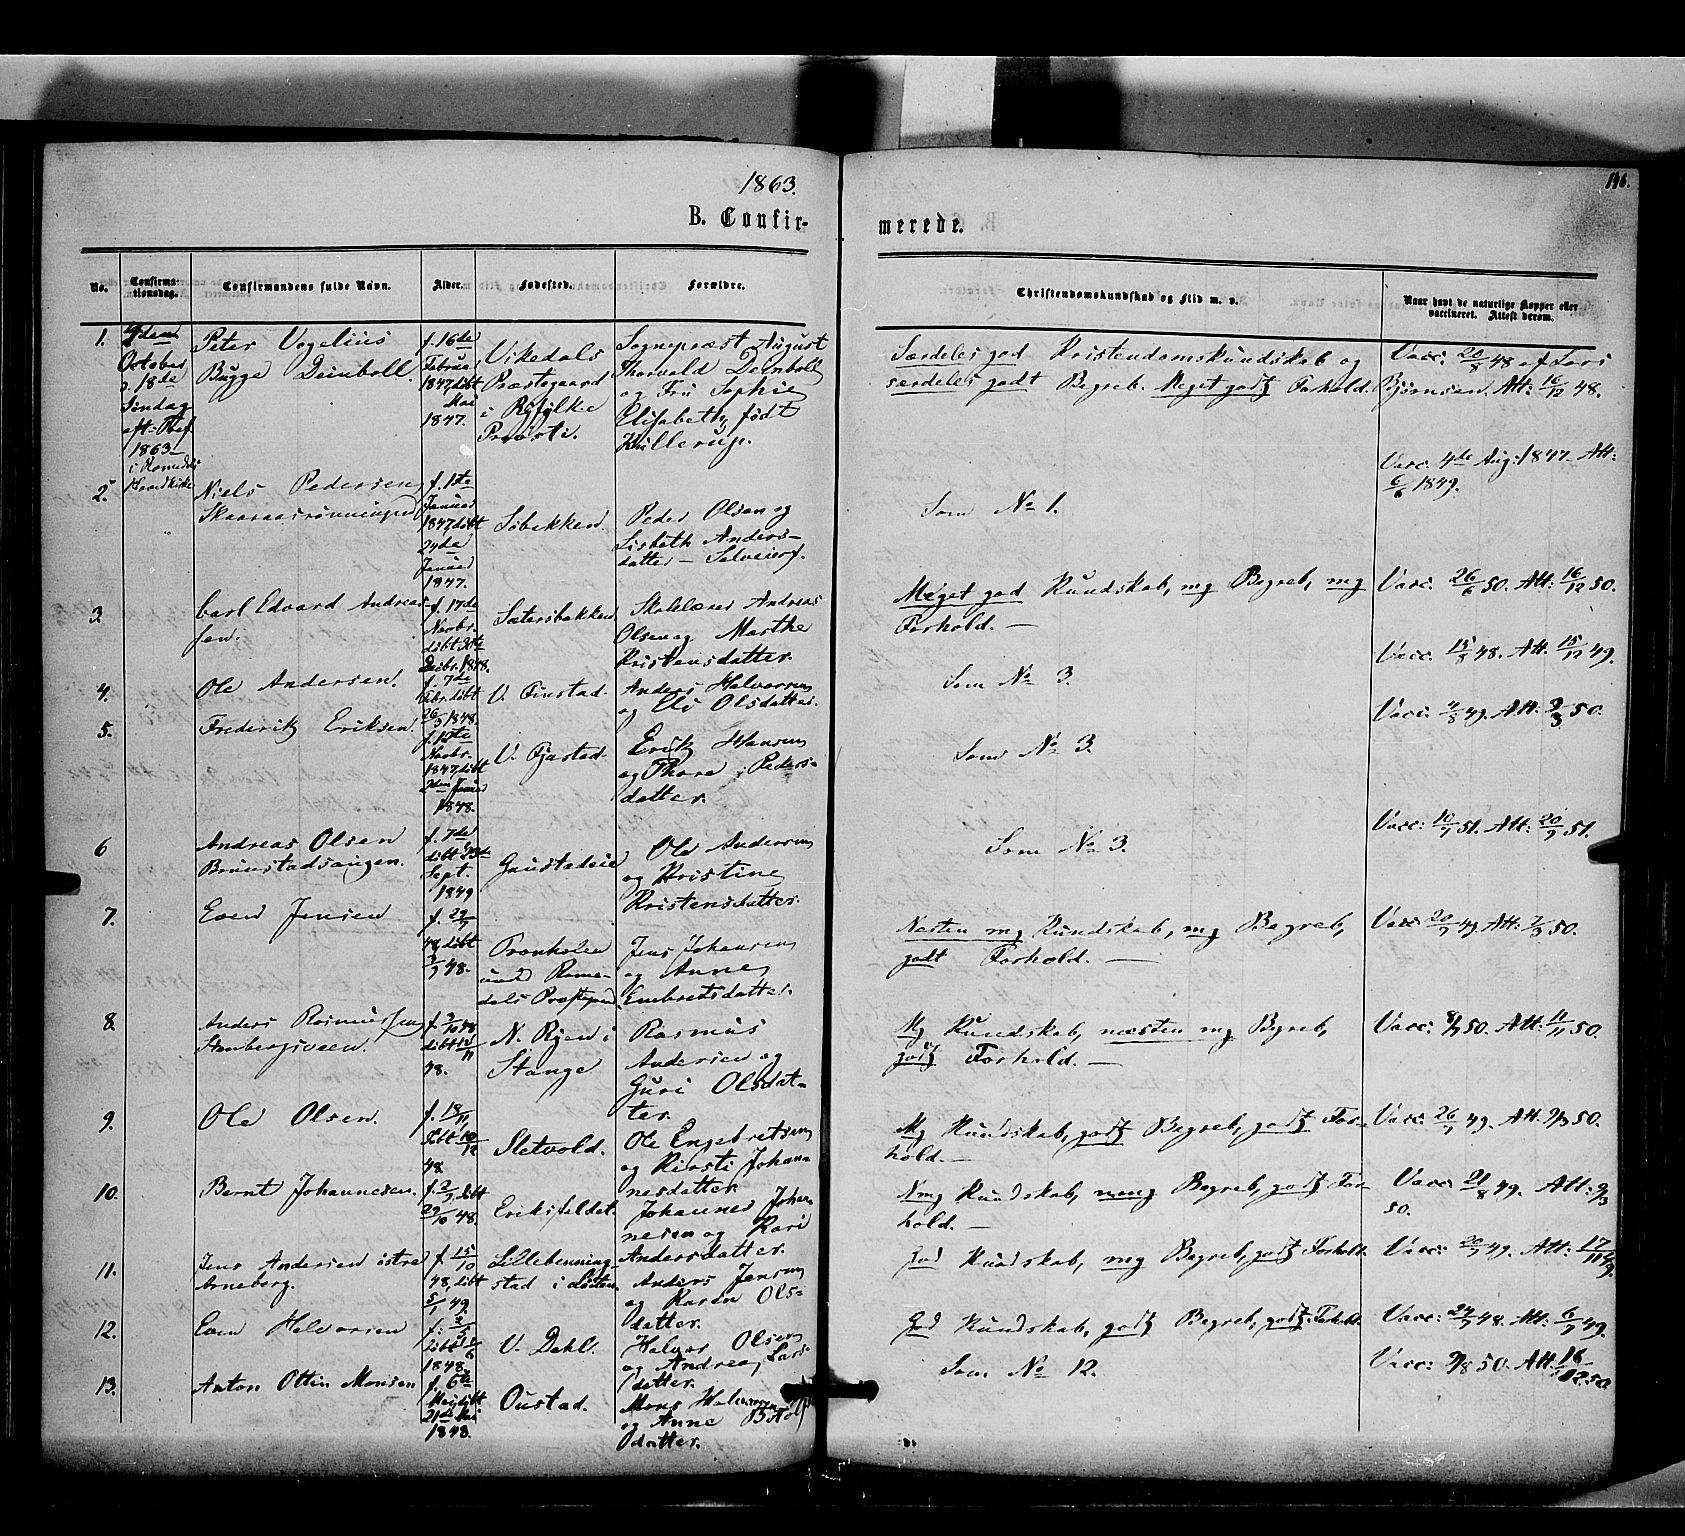 1863.
146.
B. Confir-
merede.
No.
Confirma-
tionsdag.
Confirmandens fulde Navn.
Alder.
Fødested.
Forældre.
Christendomskundskab og Flid m. v.
Naar havt de naturlige Kopper eller
vaccineret. Attest derom.
1.
October
18de
Søndag
1863
Peter Vogelius
Bugge Deinboll.
f. 16de
Februar
1847, døbt
Mai
1847.
Vikedals
Præstegaard
i Ryfylke
Prousti.
Sognepræst August
Thorvald Deinboll
og Fru Sophie
Elisabeth, født
Hillerup.
Særdeles god Kristendomskundskab og
særdeles godt Begreb. Meget godt Forhold.
Vacc: 20/8 48 af Lars
Bjørnsen. Att: 16/12 48.
2.
Niels Pedersen
f. 1ste
Januar
1847, døbt
24de
Januar
1847.
Sobakken.
Peder Olsen og
Lisbeth Anders-
datter - Selveierf.
Som No 1.
Vacc. 4de Aug: 1847 Att:
6/6 1849.
3.
Carl Edvard Andreas-
sen.
f. 17de
Novbr.
døbt
Decbr. 1848.
Sætersbakken
Skolelærer Andreas
Olsen og Marthe
Kristensdatter.
Meget god Kundskab, mg Begreb, mg
Forhold. —
Vacc. 26/6 50. Att: 16/12 50.
4.
Ole Andersen.
f. 7de
Febr. døbt
26/3 1848.
Anders Halvorsen
og Eli Olsdatter.
Som No 3.
Vacc. 15/8 48. Att. 15/12 49.
5.
Frederik Eriksen.
Novbr.
1847, døbt
1848.
V. Fjustad.
Erik Hansen
og Thore Peders-
datter.
Som No 3.
Vacc: 4/8 49. Att. 2/3 50.
6
Andreas Olsen
Bruustadsangen.
f. 7de
døbt 23de
Sept.
1849
Gaustadeie
Ole Andersen
og Kristine
Kristensdatter.
Som No 3.
Vacc: 10/7 51. Att: 20/9 51.
7.
Even Jensen
f. 22/7
48, døbt
48.
under Rome-
dals Præstegjeld
Jens Johansen
og Anne
Embretsdatter.
Næsten mg Kundskab, mg Begreb,
godt Forhold. —
Vacc: 20/7 49 Att: 2/3 50.
8.
Anders Rasmussen
Stenbergsveen.
f. 3/10 48
døbt 12/11
48.
N. Ryen i
Stange
Rasmus
Andersen og
Guri Olsdat-
ter.
Mg Kundskab, næsten mg Begreb,
godt Forhold. —
Vacc: 8/7 50. Att: 11/11 50.
9.
Ole Olsen.
f. 18/11,
døbt 10/12
48
Sletvold.
Ole Engebretsen
og Kirsti Johan-
nesdatter
Mg Kundskab, godt Begreb, godt For-
hold. —
Vacc: 26/7 49. Att. 2/3 50.
10.
Bernt Johannesen.
f. 2/9, døbt
29/10 48.
Eriksfaldet.
Johannes Johan-
nesen og Kari
Andersdatter.
Nmg Kundskab, nmg Begreb, godt For-
hold. —
Vacc: 21/8 49. Att: 2/3
50.
11.
Jens Andersen østre
Arneberg.
f. 15/10
48, døbt
5/1 49.
Lillebenning-
stad i Løten.
Anders Jensen
og Karen Ols-
datter.
God Kundskab, mg Begreb, godt Forhold.
Vacc: 20/7 49. Att: 17/11 49.
12.
Even Halvorsen
1848.
V. Dahl.
Halvor Olsen
og Andrea Lars-
datter.
God Kundskab, godt Begreb, godt Forhold.
Vacc: 24/7 48. Att: 6/7 49.
13.
Anton Ottin Monsen
f. 6te
Mai, døbt
21de Mai
1848.
Oustad.
Mons Halvorsen
og Anne
datter.
Som No 12.
Vacc: 9/8 50. Att: 16/12 50